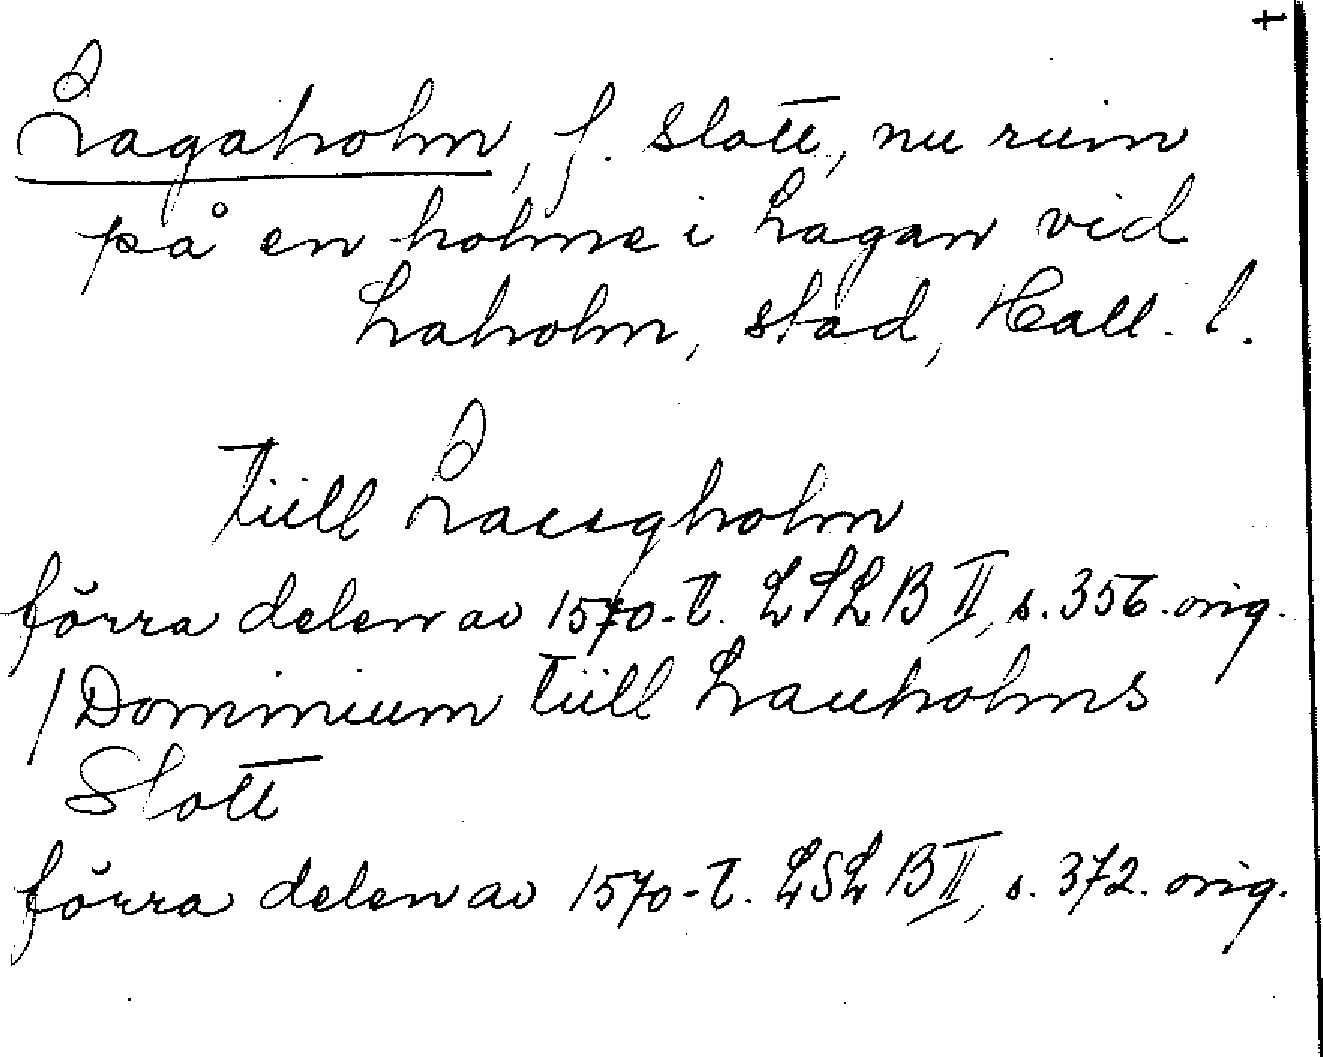 t
Lagaholm, f. slott, nu ruin
på en holme i Lagan vid
Laholm, stad, Hall. l.
tiill Laugholm
förra delen av 1570-t. LSLB II, s. 356. orig.
/Dominium tiill Lauholms
Slott
förra delen av 1570-t. LSLB II, s. 372. orig.